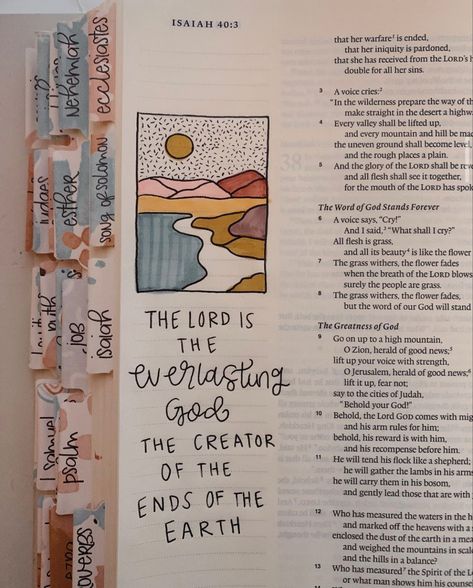 Nehemiah
ecclesiastes
judges
esther
song of solomon
JOB
isaiah
1 samuel
psalm
ISAIAH 40:3
THE LORD IS
THE
everlasting
God
THE CREATOR
OF THE
ENDS OF THE
EARTH
that her warfare¹ is ended,
that her iniquity is pardoned,
that she has received from the LORD's
double for all her sins.
3 A voice cries:²
"In the wilderness prepare the way of
make straight in the desert a
4 Every valley shall be lifted up,
and every mountain and hill be
the uneven ground shall become level,
and the rough places a plain.
5 And the glory of the LORD shall be
and all flesh shall see it together,
for the mouth of the LORD has
The Word of God Stands Forever
6 A voice says, "Cry!"
And I said,³ "What shall I cry?"
All flesh is grass,
and all its beauty⁴ is like the flower
7 The grass withers, the flower fades
when the breath of the LORD blows
surely the people are grass.
8 The grass withers, the flower fades,
but the word of our God will stand
The Greatness of God
9 Go on up to a high mountain,
O Zion, herald of good news;⁵
lift up your voice with strength,
O Jerusalem, herald of good news;⁶
lift it up, fear not;
say to the cities of Judah,
"Behold your God!"
10 Behold, the Lord GOD comes with
and his arm rules for him;
behold, his reward is with him,
and his recompense before him.
11 He will tend his flock like a shepherd;
he will gather the lambs in his
he will carry them in his bosom,
and gently lead those that are with
12 Who has measured the waters in the
and marked off the heavens with a
enclosed the dust of the earth in a
and weighed the mountains in
and the hills in a balance?
13 Who has measured⁷ the Spirit of the
or what man shows him his